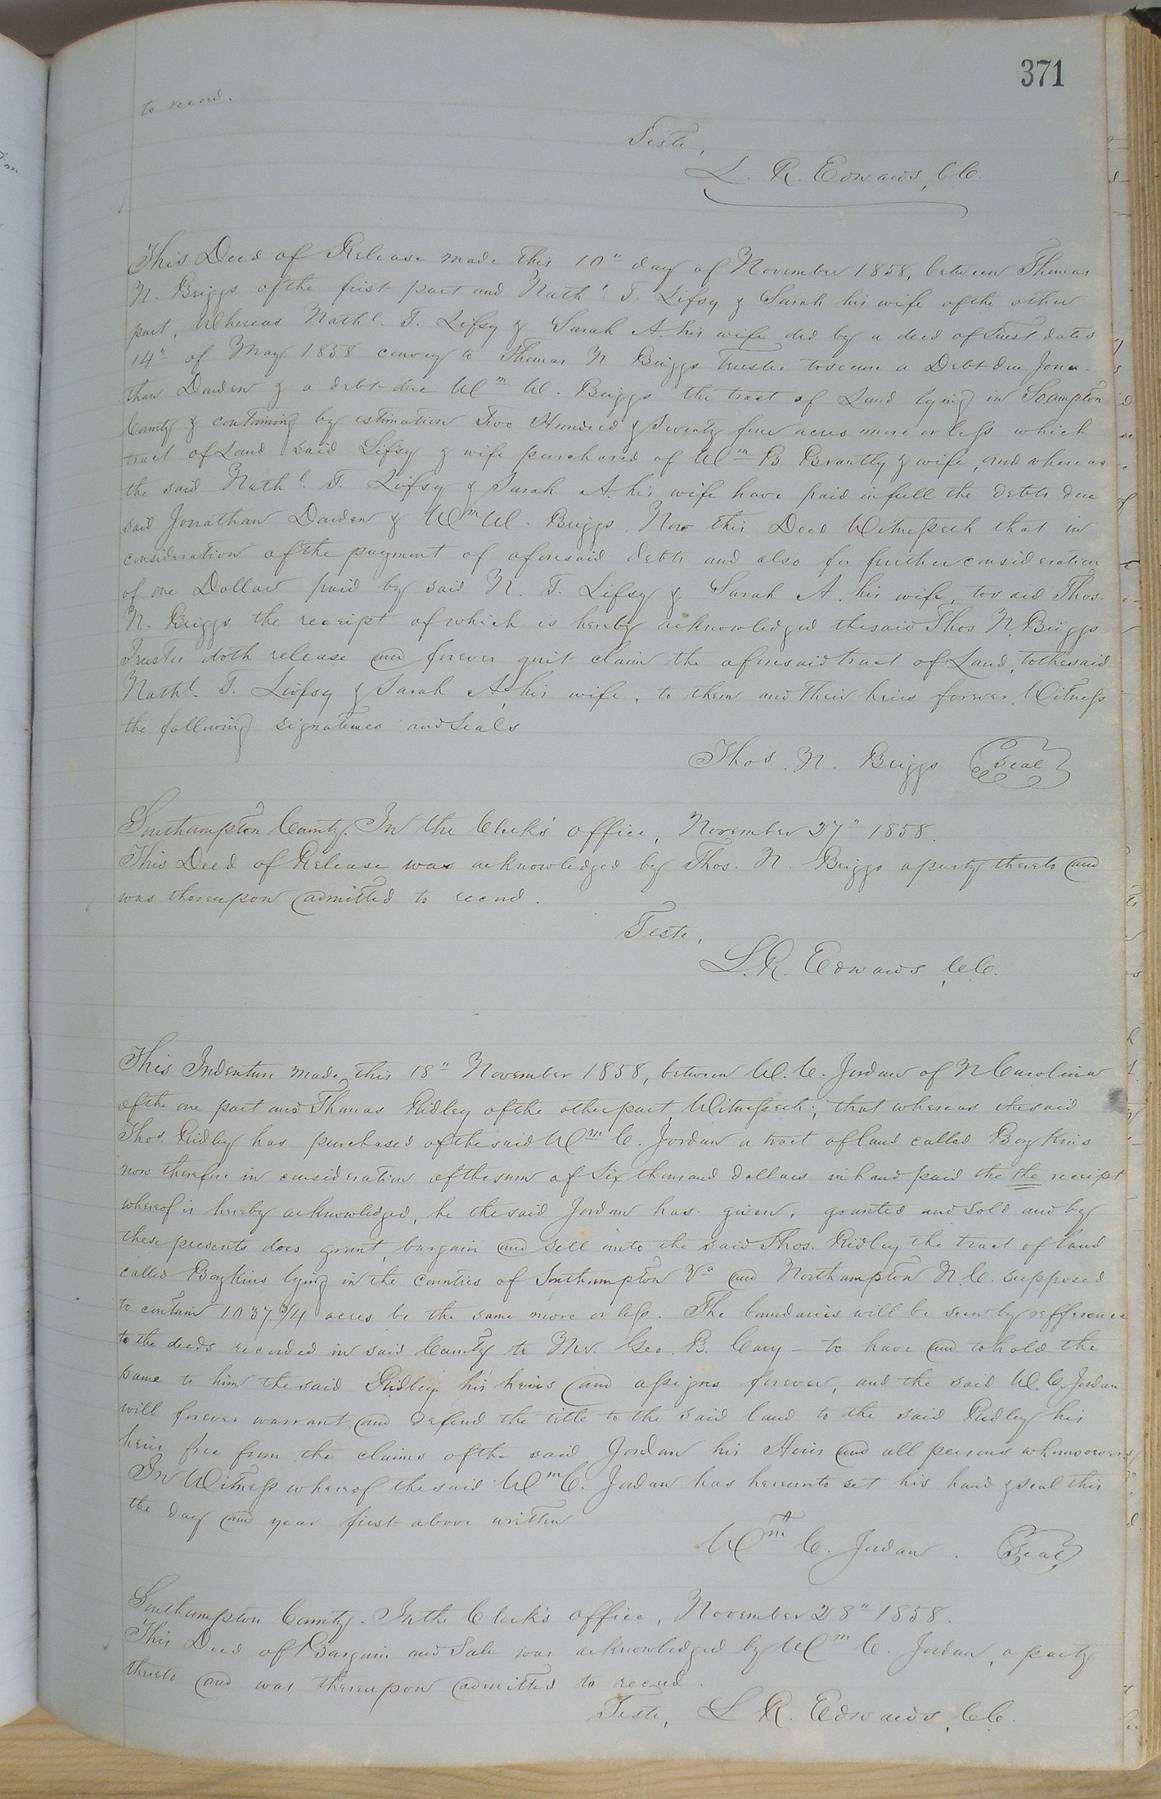 371
to record.
Teste,
L. R. Edwards, C.C.
This Deed of Release made this 10" day of November 1858, between Thomas
N. Briggs of the first part and Nathl. T. Lifsy & Sarah his wife of the other
part, Whereas Nathl. T. Lifsy & Sarah A. his wife did by a deed of Trust dated
14" of May 1858 convey to Thomas N Briggs Trustee to secure a Debt due Jona-
than Darden & a debt due Wm W. Briggs the tract of Land lying in Soampton
County & containing by estimation Two Hundred & Seventy four acres more or less which
tract of Land said Lifsy & wife purchased of Wm B Brantly & wife, and whereas
the said Nathl. T. Lifsy & Sarah A. his wife have paid in full the debts due
said Jonathan Darden & Wm W. Briggs. Now this Deed Witnesseth that in
consideration of the payment of aforesaid debts and also for further consideration
of one Dollar paid by said N. T. Lifsy & Sarah A. his wife, to said Thos.
N. Briggs the receipt of which is hereby acknowledged the said Thos N. Briggs
Trustee doth release and forever quit claim the aforesaid tract of Land, to the said
Nathl. T. Lifsy & Sarah A. his wife, to them and their heirs forever. Witness
the following signatures and Seals
Thos. N. Briggs Seal
Southampton County. In the Clerk's office, November 27" 1858.
This Deed of Release was acknowledged by Thos. N. Briggs a party thereto and
was thereupon admitted to record.
Teste,
L. R. Edwards, C.C.
This Indenture made this 18" November 1858, between W. C. Jordan of N Carolina
of the one part and Thomas Ridley of the other part Witnesseth; that whereas the said
Thos. Ridley has purchased of the said Wm C. Jordan a tract of land called Boykins
now therefore in consideration of the sum of Six thousand dollars in hand paid the the receipt
whereof is hereby acknowledged, he the said Jordan has given, granted and sold and by
these presents does grant, bargain and sell unto the said Thos. Ridley the tract of land
called Boykins lying in the counties of Southampton Va and Northampton N. C. supposed
to contain 1037 3/4 acres be the same more or less. The boundaries will be seen by refference
to the deeds recorded in said County to Mr. Geo. B. Cary - to have and to hold the
same to him the said Ridley his heirs and assigns forever, and the said W. C. Jordan
will forever warrant and defend the title to the said land to the said Ridley his
heirs free from the claims of the said Jordan his Heirs and all persons whomsoever
In Witness whereof the said Wm C. Jordan has hereunto set his hand & seal this
the day and year first above written
Wm C. Jordan. Seal
Southampton County. In the Clerk's office, November 28" 1858.
This Deed of Bargain and Sale was acknowledged by Wm C. Jordan, a party
thereto and was thereupon admitted to record.
Teste, L R. Edwards, C.C.